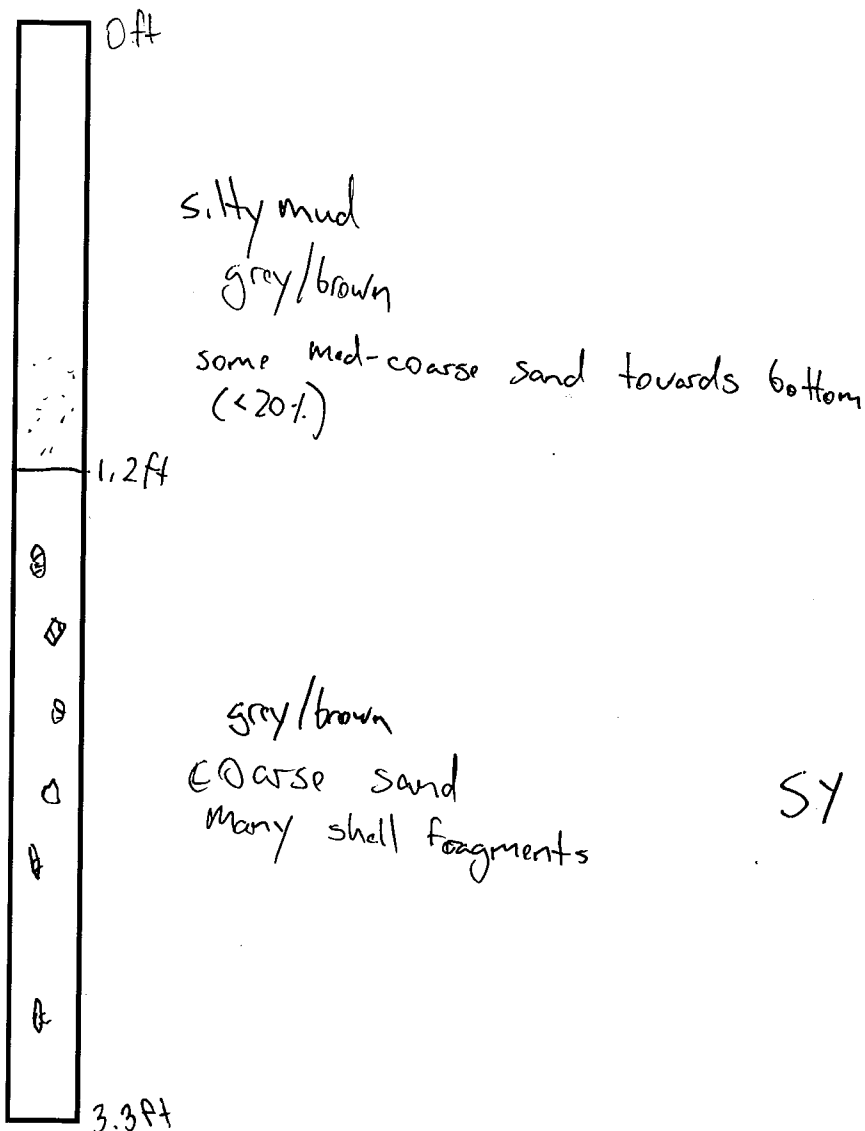 0ft
silty mud
grey/brown
some med-coarse sand towards bottom
(<20%)
1.2ft
grey/brown
coarse sand
SY
Many shell fragments
3.3ft